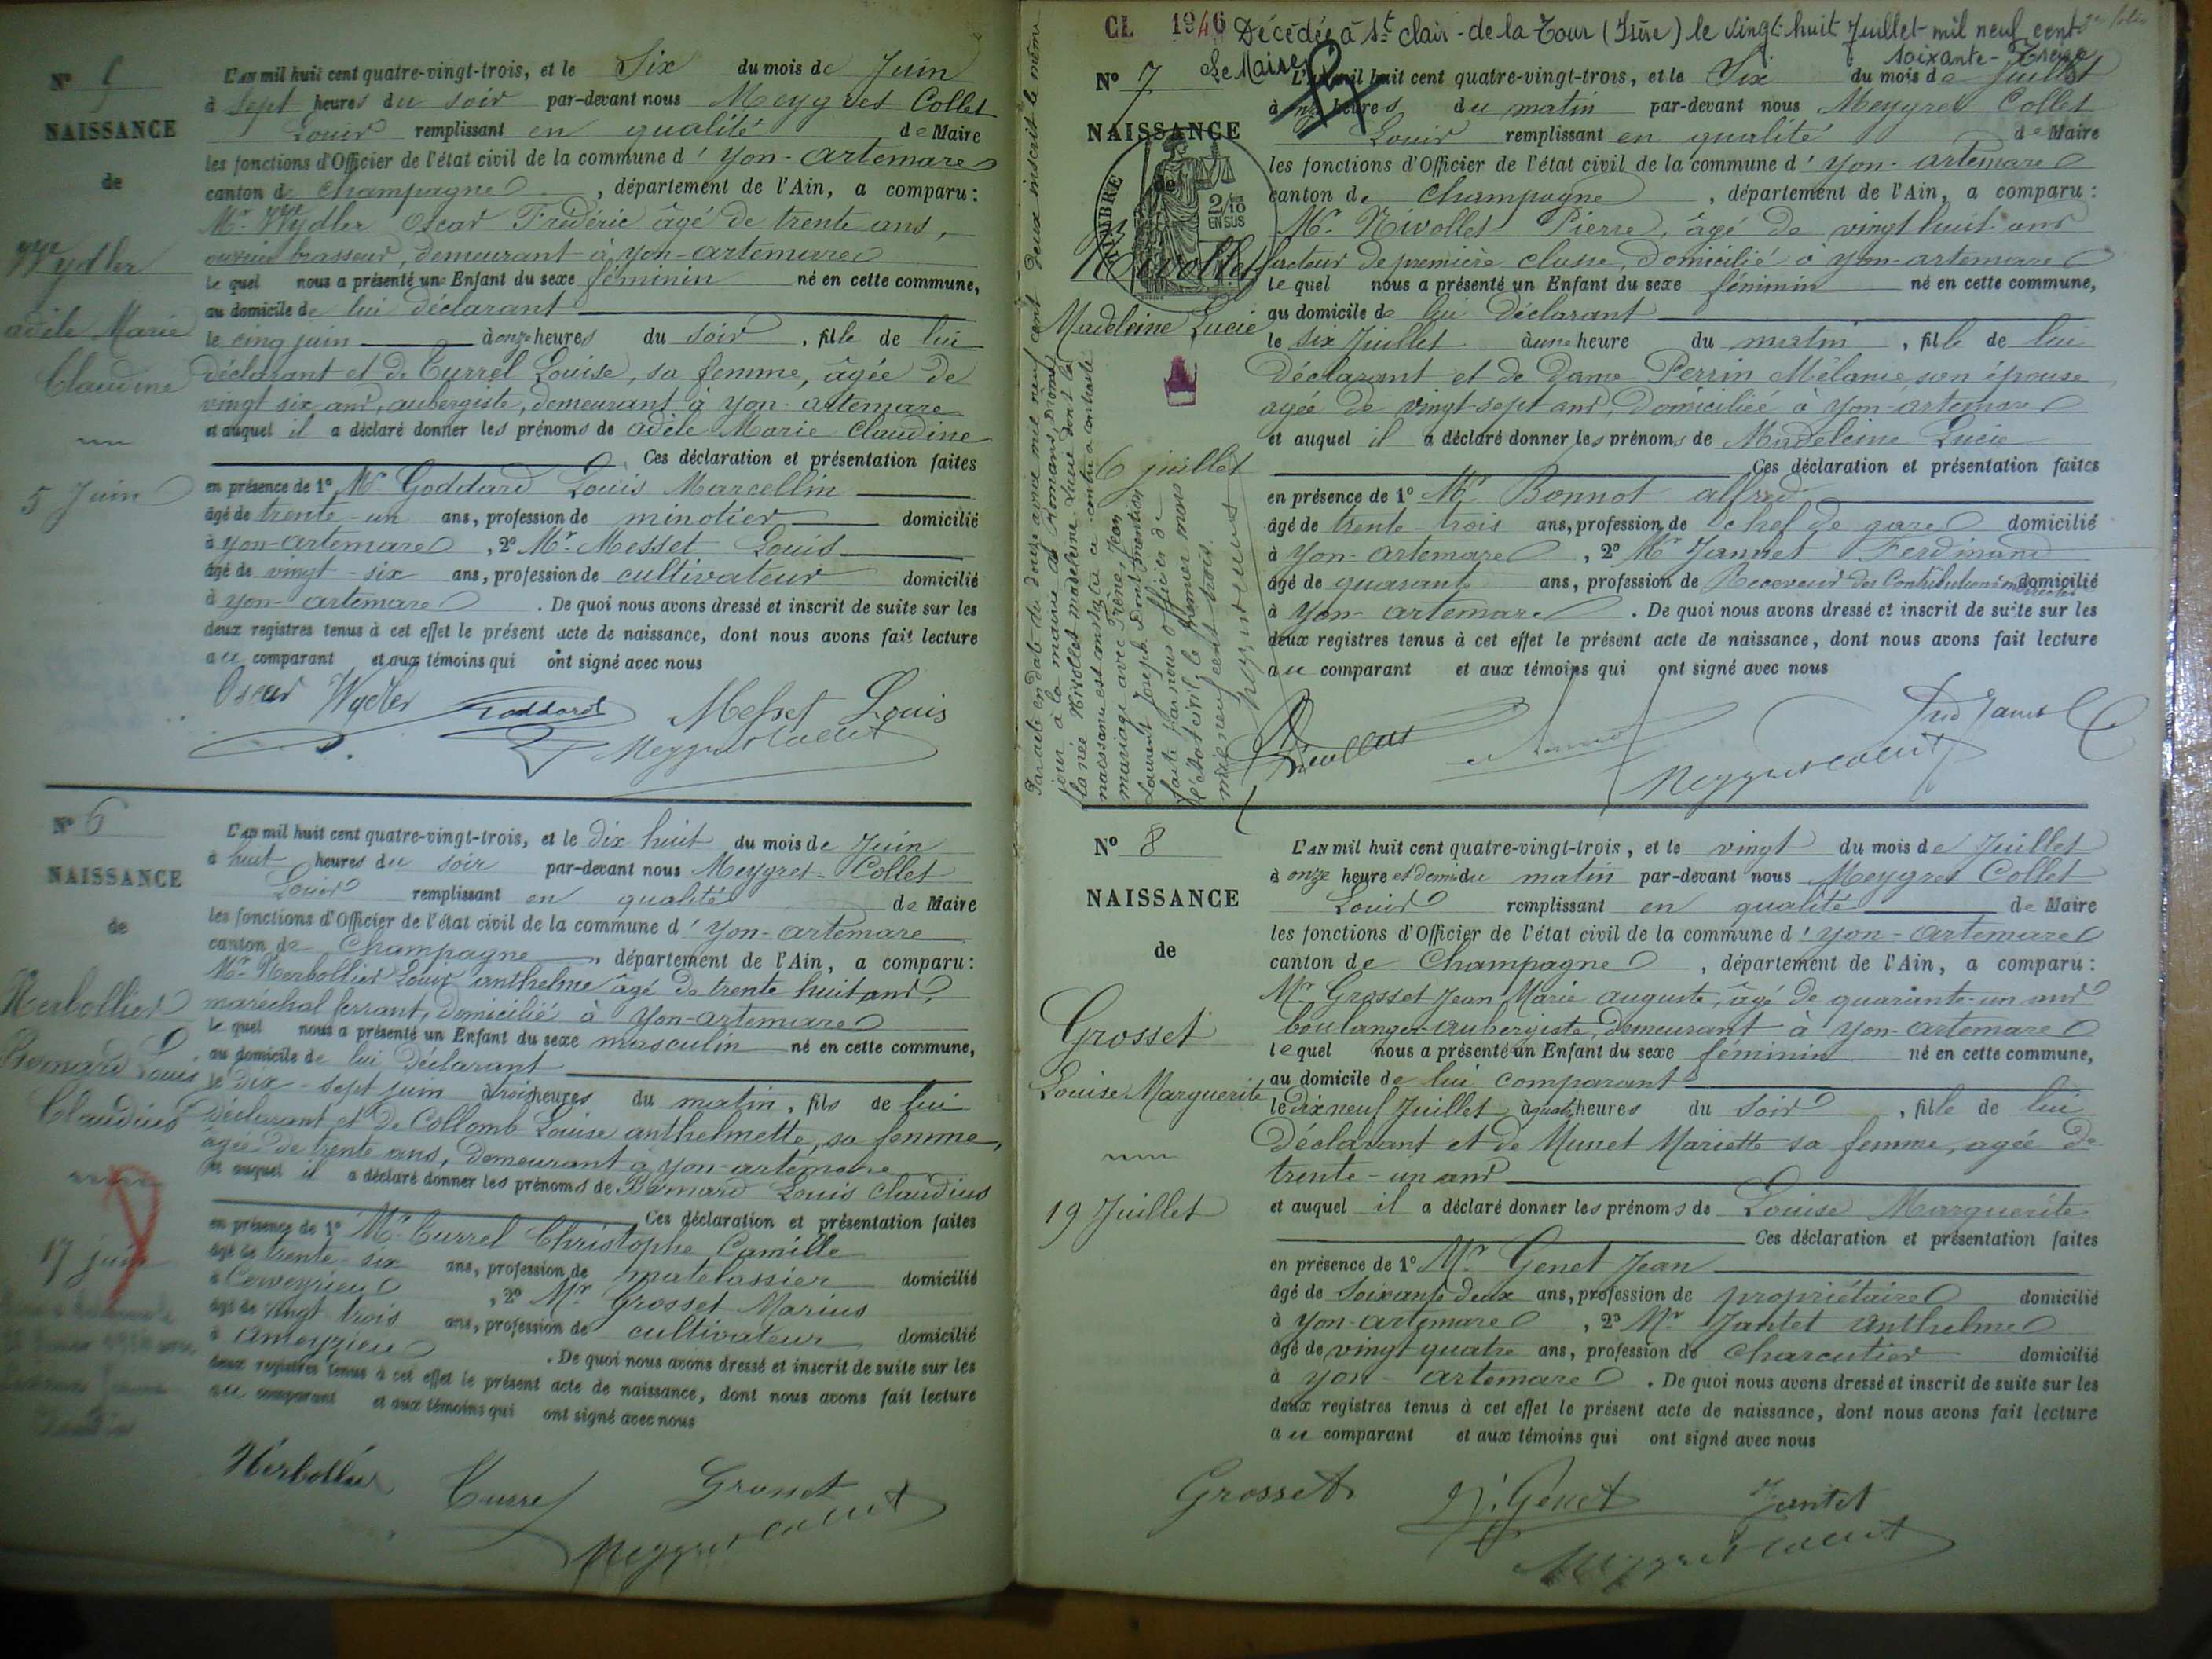 Nº 5
NAISSANCE
de
Wydler
adèle Marie
Claudine
5 Juin
L'an mil huit cent quatre-vingt-trois, et le Six du mois de Juin
à Sept heures du soir par-devant nous Meygret Collet
Louis remplissant en qualité de Maire
les fonctions d'Officier de l'état civil de la commune d'Yon-Artemare
canton de Champagne, département de l'Ain, a comparu:
Mr. Wydler Oscar Frédéric âgé de trente ans,
ouvrier brasseur, demeurant à Yon-artemare
le quel nous a présenté un Enfant du sexe féminin né en cette commune,
au domicile de lui déclarant
le cinq juin à onze heures du soir, fille de lui
déclarant et de Turrel Louise, sa femme, âgée de
vingt six ans, aubergiste, demeurant à Yon-artemare
et auquel il a déclaré donner les prénoms de adèle Marie Claudine
Ces déclaration et présentation faites
en présence de 1º Mr. Goddard Louis Marcellin
âgé de trente-un ans, profession de minotier domicilié
à Yon-artemare, 2º Mr. Messet Louis
âgé de vingt-six ans, profession de cultivateur domicilié
à Yon-artemare. De quoi nous avons dressé et inscrit de suite sur les
deux registres tenus à cet effet le présent acte de naissance, dont nous avons fait lecture
au comparant et aux témoins qui ont signé avec nous
Oscar Wydler Goddard Messet Louis
Meygret Collet
Nº 6
NAISSANCE
de
Herbollier
Bernard Louis
Claudius
17 juin
L'an mil huit cent quatre-vingt-trois, et le dix huit du mois de Juin
à huit heures du soir par-devant nous Meygret-Collet
Louis remplissant en qualité de Maire
les fonctions d'Officier de l'état civil de la commune d'Yon-Artemare
canton de Champagne, département de l'Ain, a comparu:
Mr. Herbollier Louis anthelme âgé de trente huit ans,
maréchal ferrant, domicilié à Yon-artemare
le quel nous a présenté un Enfant du sexe masculin né en cette commune,
au domicile de lui Déclarant
le dix-sept juin à trois heures du matin, fils de lui
déclarant et de Collomb Louise anthelmette, sa femme,
âgée de trente ans, demeurant à yon-artemare
et auquel il a déclaré donner les prénoms de Bernard Louis Claudius
Ces déclaration et présentation faites
en présence de 1º Mr. Turrel Christophe Camille
âgé de trente-six ans, profession de matelassier domicilié
à Cerveyrieu, 2º Mr Grosset Marius
âgé de vingt trois ans, profession de cultivateur domicilié
à ameyzieu. De quoi nous avons dressé et inscrit de suite sur les
deux registres tenus à cet effet le présent acte de naissance, dont nous avons fait lecture
au comparant et aux témoins qui ont signé avec nous
Herbollier Turrel Grosset
Meygret Collet
CL 1946 Décédée à St clair-de la Tour (Isère) le vingt-huit Juillet mil neuf cent
soixante-treize
Le Maire
Nº 7
NAISSANCE
de
TIMBRE
2/10
EN SUS
Nivollet
Madeleine Lucie
6 juillet
Par acte en date du douze avril mil neuf cent deux inscrit le même
jour à la mairie de Romans, Drôme,
la née Nivollet Madeleine Lucie dont la
naissance est constatée ci-contre a contracté
mariage avec Jean
Laurent Joseph. Dont mention
faite par nous officier de
l'état civil le premier mars
mil neuf cent trois.
L'an mil huit cent quatre-vingt-trois, et le Six du mois de Juillet
à onze heures du matin par-devant nous Meygret Collet
Louis remplissant en qualité de Maire
les fonctions d'Officier de l'état civil de la commune d'Yon-artemare
canton de Champagne, département de l'Ain, a comparu:
Mr. Nivollet Pierre, âgé de vingt huit ans
facteur de première classe, domicilié à Yon-artemare
le quel nous a présenté un Enfant du sexe féminin né en cette commune,
au domicile de lui Déclarant
le six Juillet à une heure du matin, fille de lui
Déclarant et de Dame Perrin Mélanie son épouse
agée de vingt-sept ans, Domiciliée à Yon-artemare
et auquel il a déclaré donner les prénoms de Madeleine Lucie
Ces déclaration et présentation faites
en présence de 1º Mr Bonnot alfred
âgé de trente-trois ans, profession de chef de gare domicilié
à Yon-Artemare, 2º Mr Jannet Ferdinand
âgé de quarante ans, profession de Receveur des Contributions indirectes domicilié
à Yon-artemare. De quoi nous avons dressé et inscrit de suite sur les
deux registres tenus à cet effet le présent acte de naissance, dont nous avons fait lecture
au comparant et aux témoins qui ont signé avec nous
Meygret Collet
Nº 8
NAISSANCE
de
Grosset
Louise Marguerite
19 Juillet
L'an mil huit cent quatre-vingt-trois, et le vingt du mois de Juillet
à onze heure et demi du matin par-devant nous Meygret Collet
Louis remplissant en qualité de Maire
les fonctions d'Officier de l'état civil de la commune d'Yon-Artemare
canton de Champagne, département de l'Ain, a comparu:
Mr Grosset Jean Marie auguste, âgé de quarante-un ans
boulanger-aubergiste, demeurant à Yon-artemare
le quel nous a présenté un Enfant du sexe féminin né en cette commune,
au domicile de lui comparant
le Dix neuf Juillet à quatre heures du soir, fille de lui
Déclarant et de Munet Mariette sa femme, agée de
trente-un ans
et auquel il a déclaré donner les prénoms de Louise Marguerite
Ces déclaration et présentation faites
en présence de 1º Mr Genet Jean
âgé de Soixante deux ans, profession de propriétaire domicilié
à Yon-artemare, 2º Mr Jantet Anthelme
âgé de vingt quatre ans, profession de charcutier domicilié
à Yon-artemare. De quoi nous avons dressé et inscrit de suite sur les
deux registres tenus à cet effet le présent acte de naissance, dont nous avons fait lecture
au comparant et aux témoins qui ont signé avec nous
Grosset J. Genet Jantet
Meygret Collet